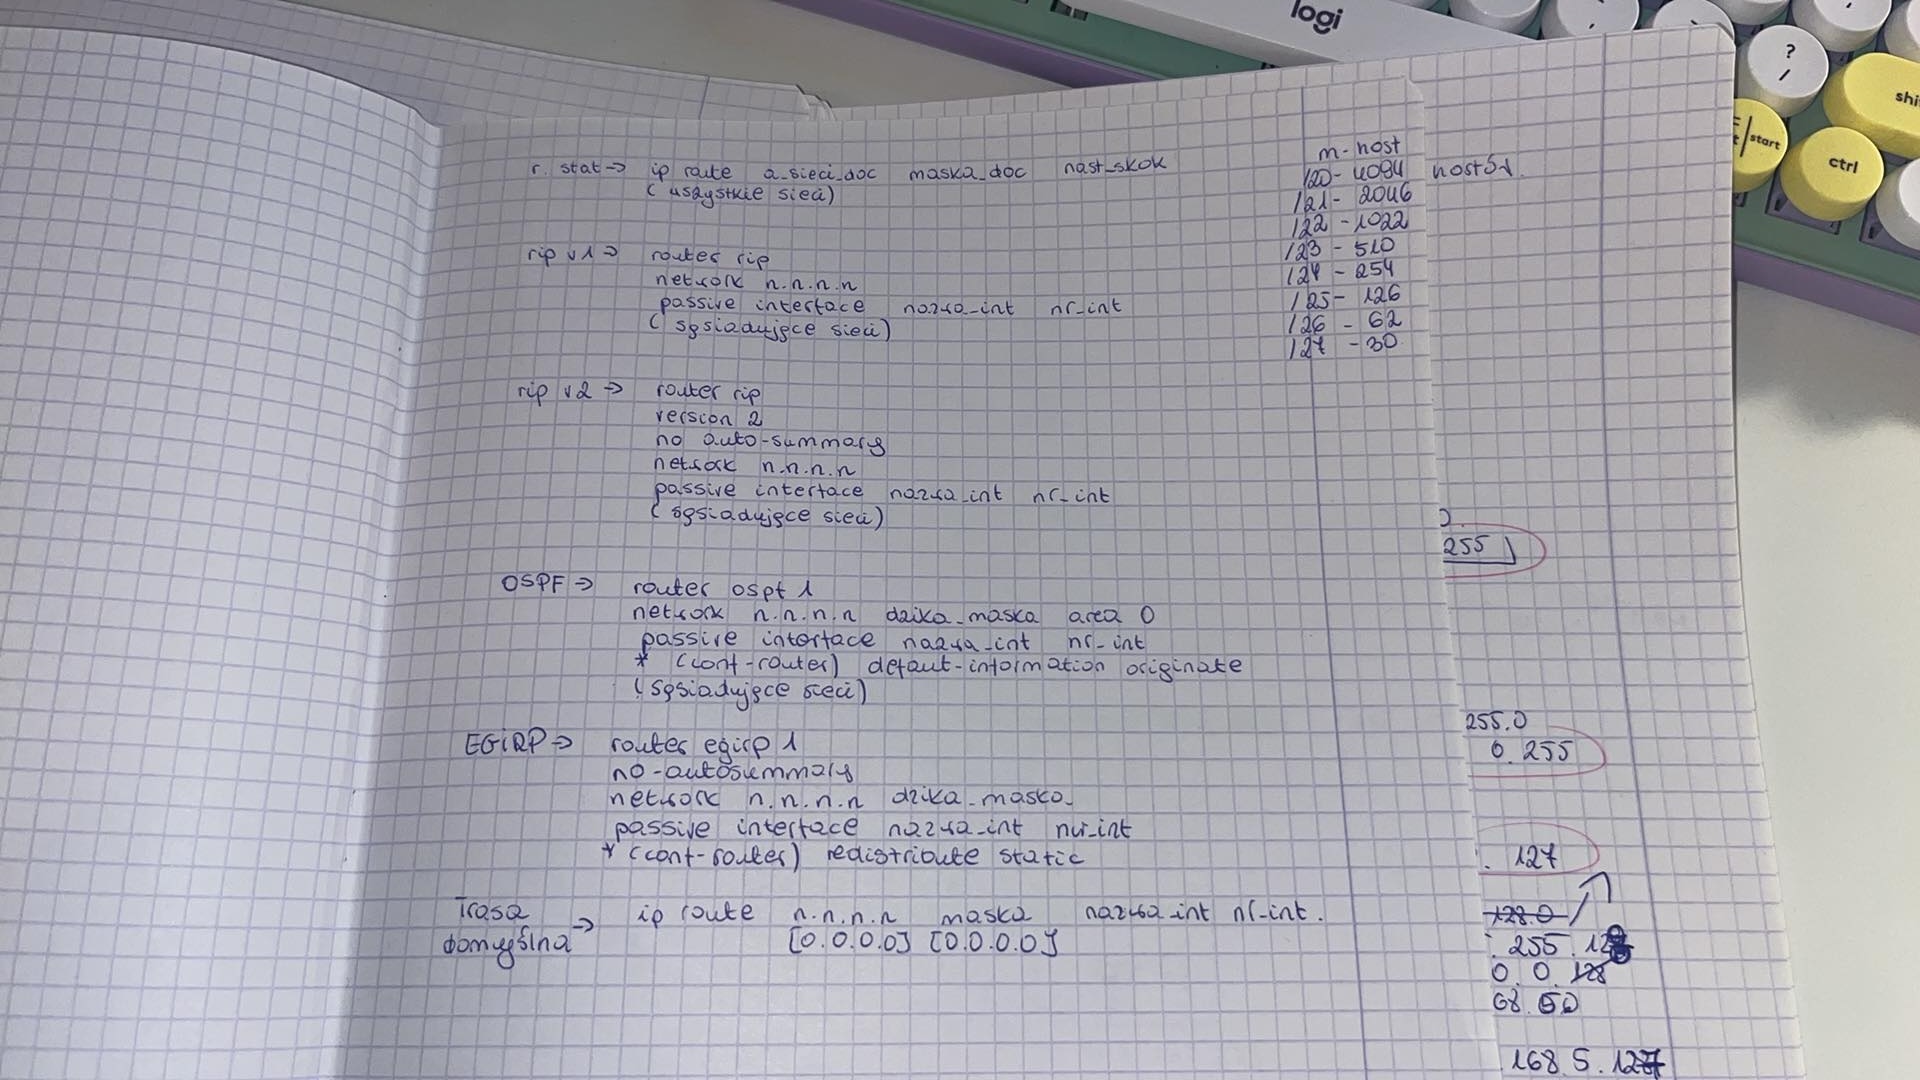 logi
?
/
shi
start
ctrl
r. stat → ip route a_sieci_doc maska_doc nast_skok
(wszystkie sieci)
rip v1 → router rip
network n.n.n.n
passive interface nazwa_int nr_int
(sąsiadujęce sieci)
rip v2 → router rip
version 2
no auto-summary
network n.n.n.n
passive interface nazwa_int nr_int
(sąsiadujęce sieci)
OSPF → router ospf 1
network n.n.n.n dzika_maska area 0
passive interface nazwa_int nr_int
* (cont-router) defaut-information originate
(sąsiadujęce sieci)
EGIRP → router egirp 1
no-autosummary
network n.n.n.n dzika_maska
passive interface nazwa_int nr_int
* (cont-router) redistribute static
Trasa domyślna → ip route n.n.n.n maska nazwa_int nr_int.
[0.0.0.0] [0.0.0.0]
m-host
/20-4094 hostów.
/21-2046
/22-1022
/23-510
/24-254
/25-126
/26-62
/27-30
255
255.0
0.255
. 127
128.0
. 255.128
0.0.128
68.50
168.5.127